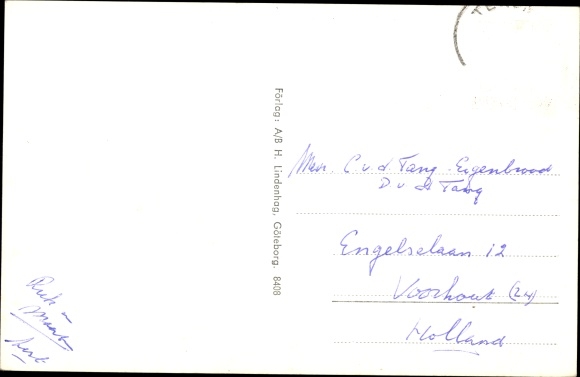 Förlag: A/B H. Lindenhag, Göteborg. 8408
Mevr. C v d Tang - Eigenbrood
D v d Tang
Engelselaan 12
Voorhout (ZH)
Holland